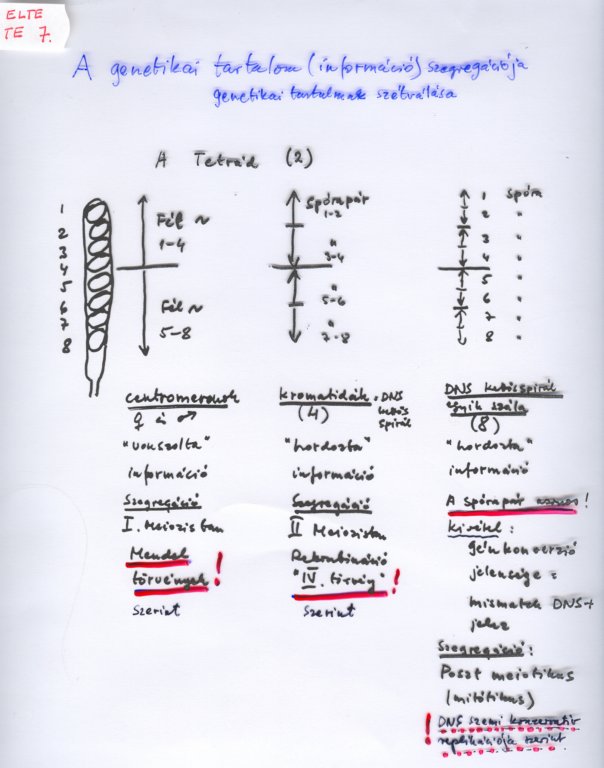 ELTE
TE 7.
A genetikai tartalom (információ) szegregációja
genetikai tartalmak szétválása
A Tetrád (2)
1
2
3
4
5
6
7
8
Fél ~
1-4
Fél ~
5-8
Spórapár
1-2
"
3-4
"
5-6
"
7-8
1 spóra
2 "
3 "
4 "
5 "
6 "
7 "
8 "
centromerounk
♀ és ♂
"vonszolta"
információ
Szegregáció
I. Meiozisban
Mendel
törvények !
szerint
kromatidák = DNS
kettős
spirál
(4)
"hordozta"
információ
Szegregáció
II Meiozisban
Rekombináció
"IV. törvény" !
szerint
DNS kettősspirál
egyik szála
(8)
"hordozta"
információ
A spórapár azonos !
Kivétel :
génkonverzió
jelensége =
mismatch DNS-t
jelez
Szegregáció :
Poszt meiotikus
(mitótikus)
! DNS szemi konzervatív
replikációja szerint